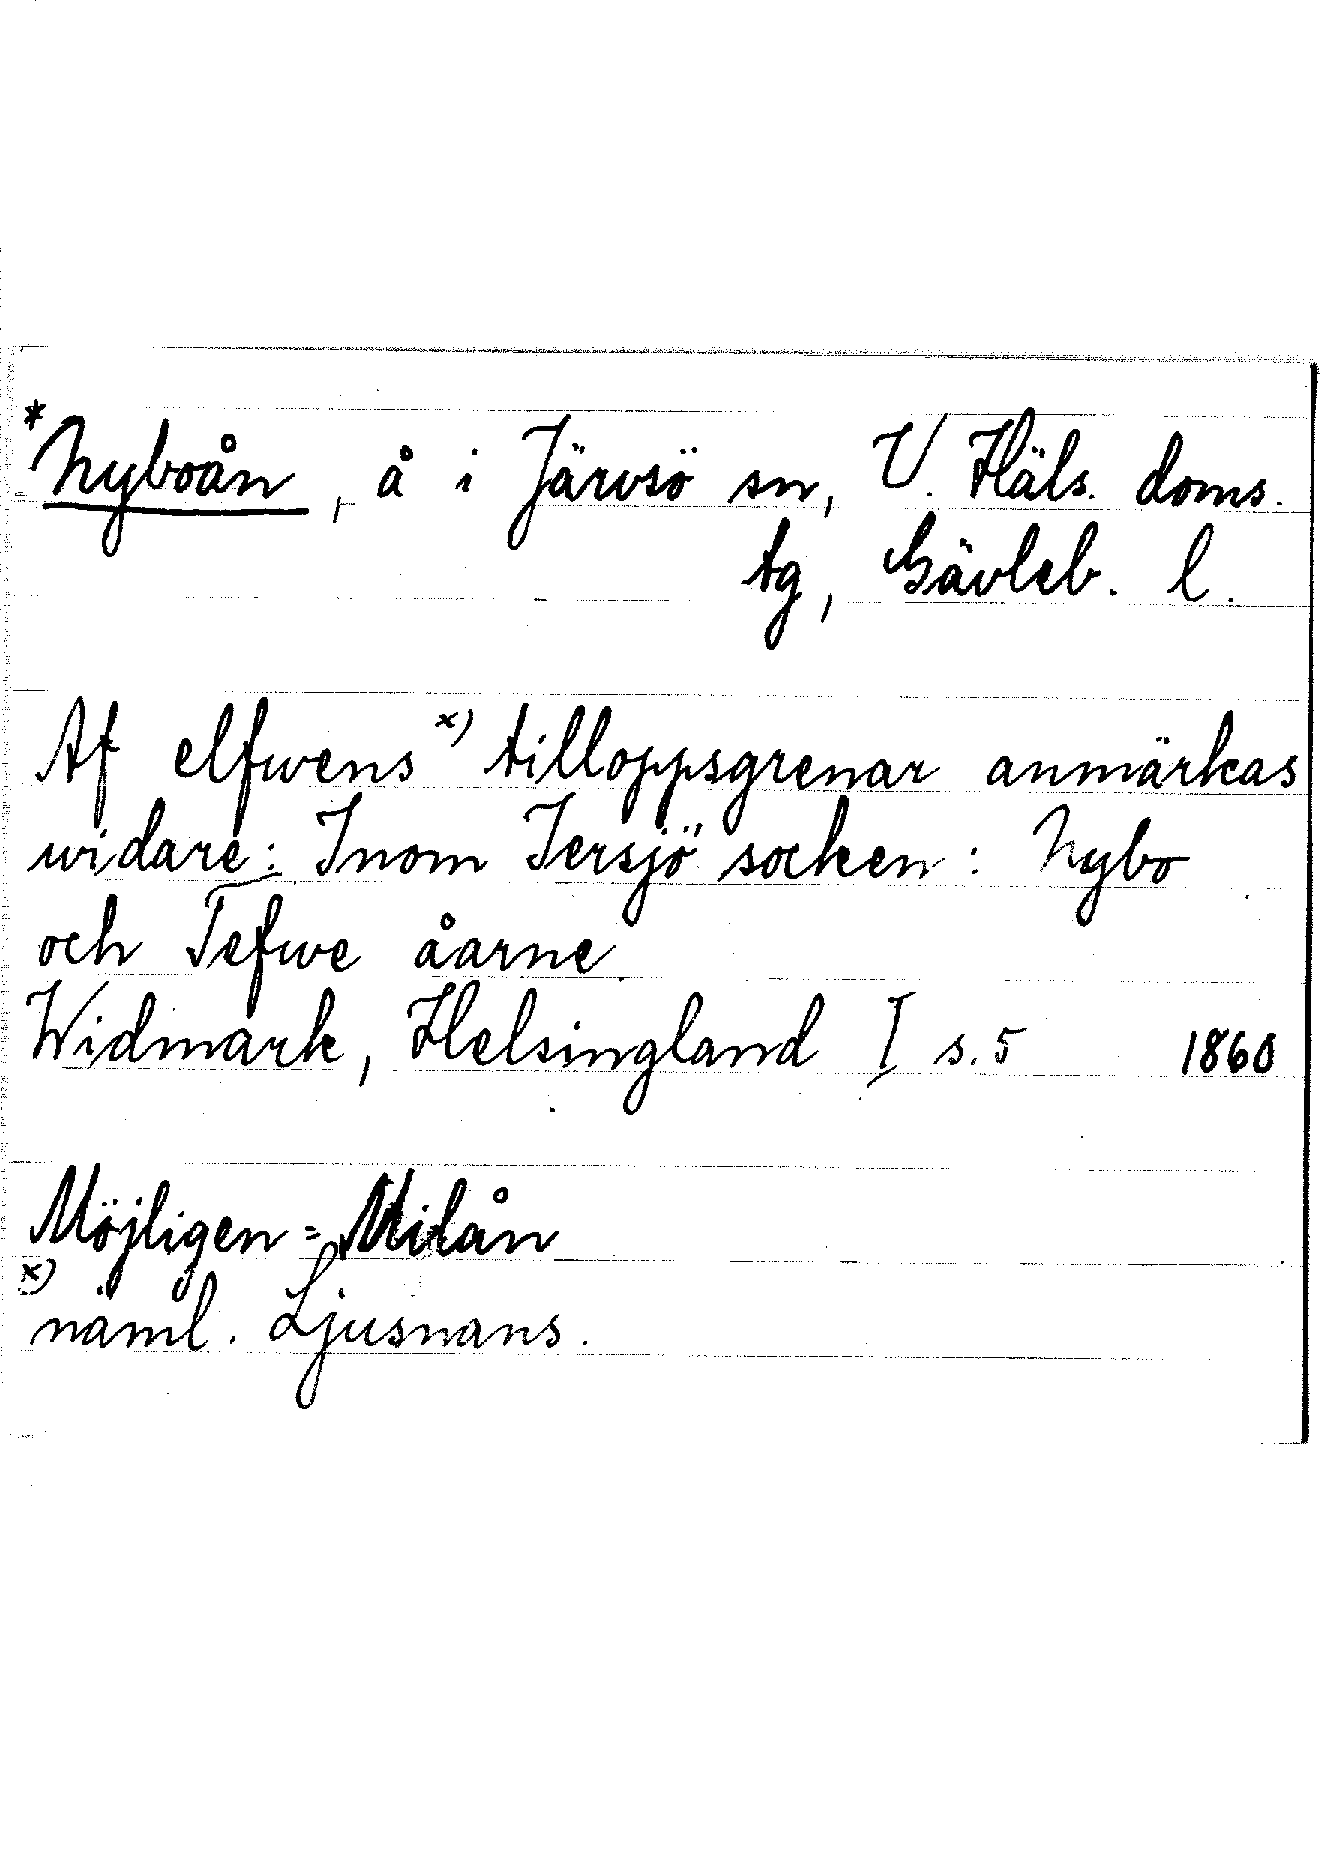 *Nyboån, å i Järvsö sn, V. Häls. doms.
tg, Gävleb. l.
Af elfwens x) tilloppsgrenar anmärkas
widare: Inom Jersjö socken: Nybo
och Tefwe åarne
Widmark, Helsingland I s. 5 1860
Möjligen = Milån
x)
näml. Ljusnans.